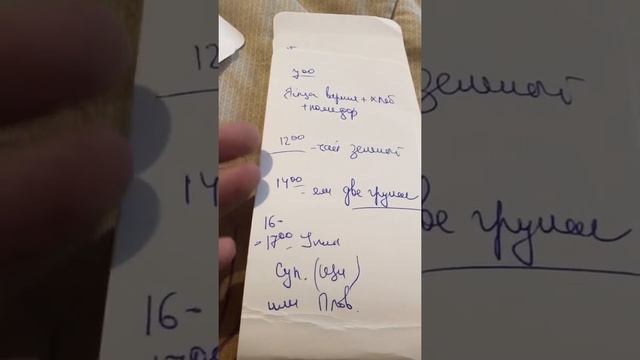 7 00
Яйца варим + хлеб
+ помидор
12 00 - чай зеленый
14 00 - ем две груши
16-
- 17 00 -
Суп. (Щи)
или Плов.